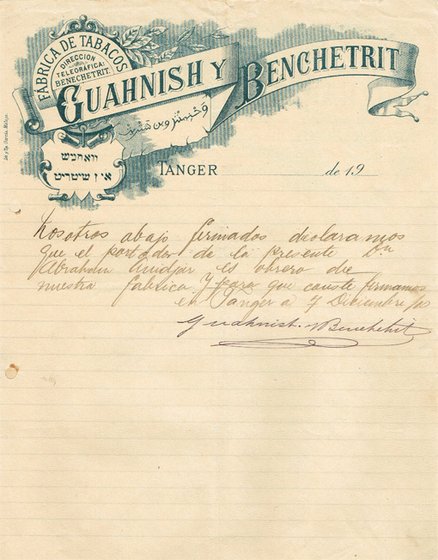 FÁBRICA DE TABACOS
DIRECCION
TELEGRÁFICA:
BENCHETRIT.
GUAHNISH Y BENCHETRIT
וואהניש
אי ן שיטרית
TANGER de 19
Nosotros abajo firmados declaramos
que el portador de la presente Dn
Abraham es obrero de
nuestra fabrica, y para que conste firmamos
en Tanger a 7 Diciembre
Guahnish y Benchetrit